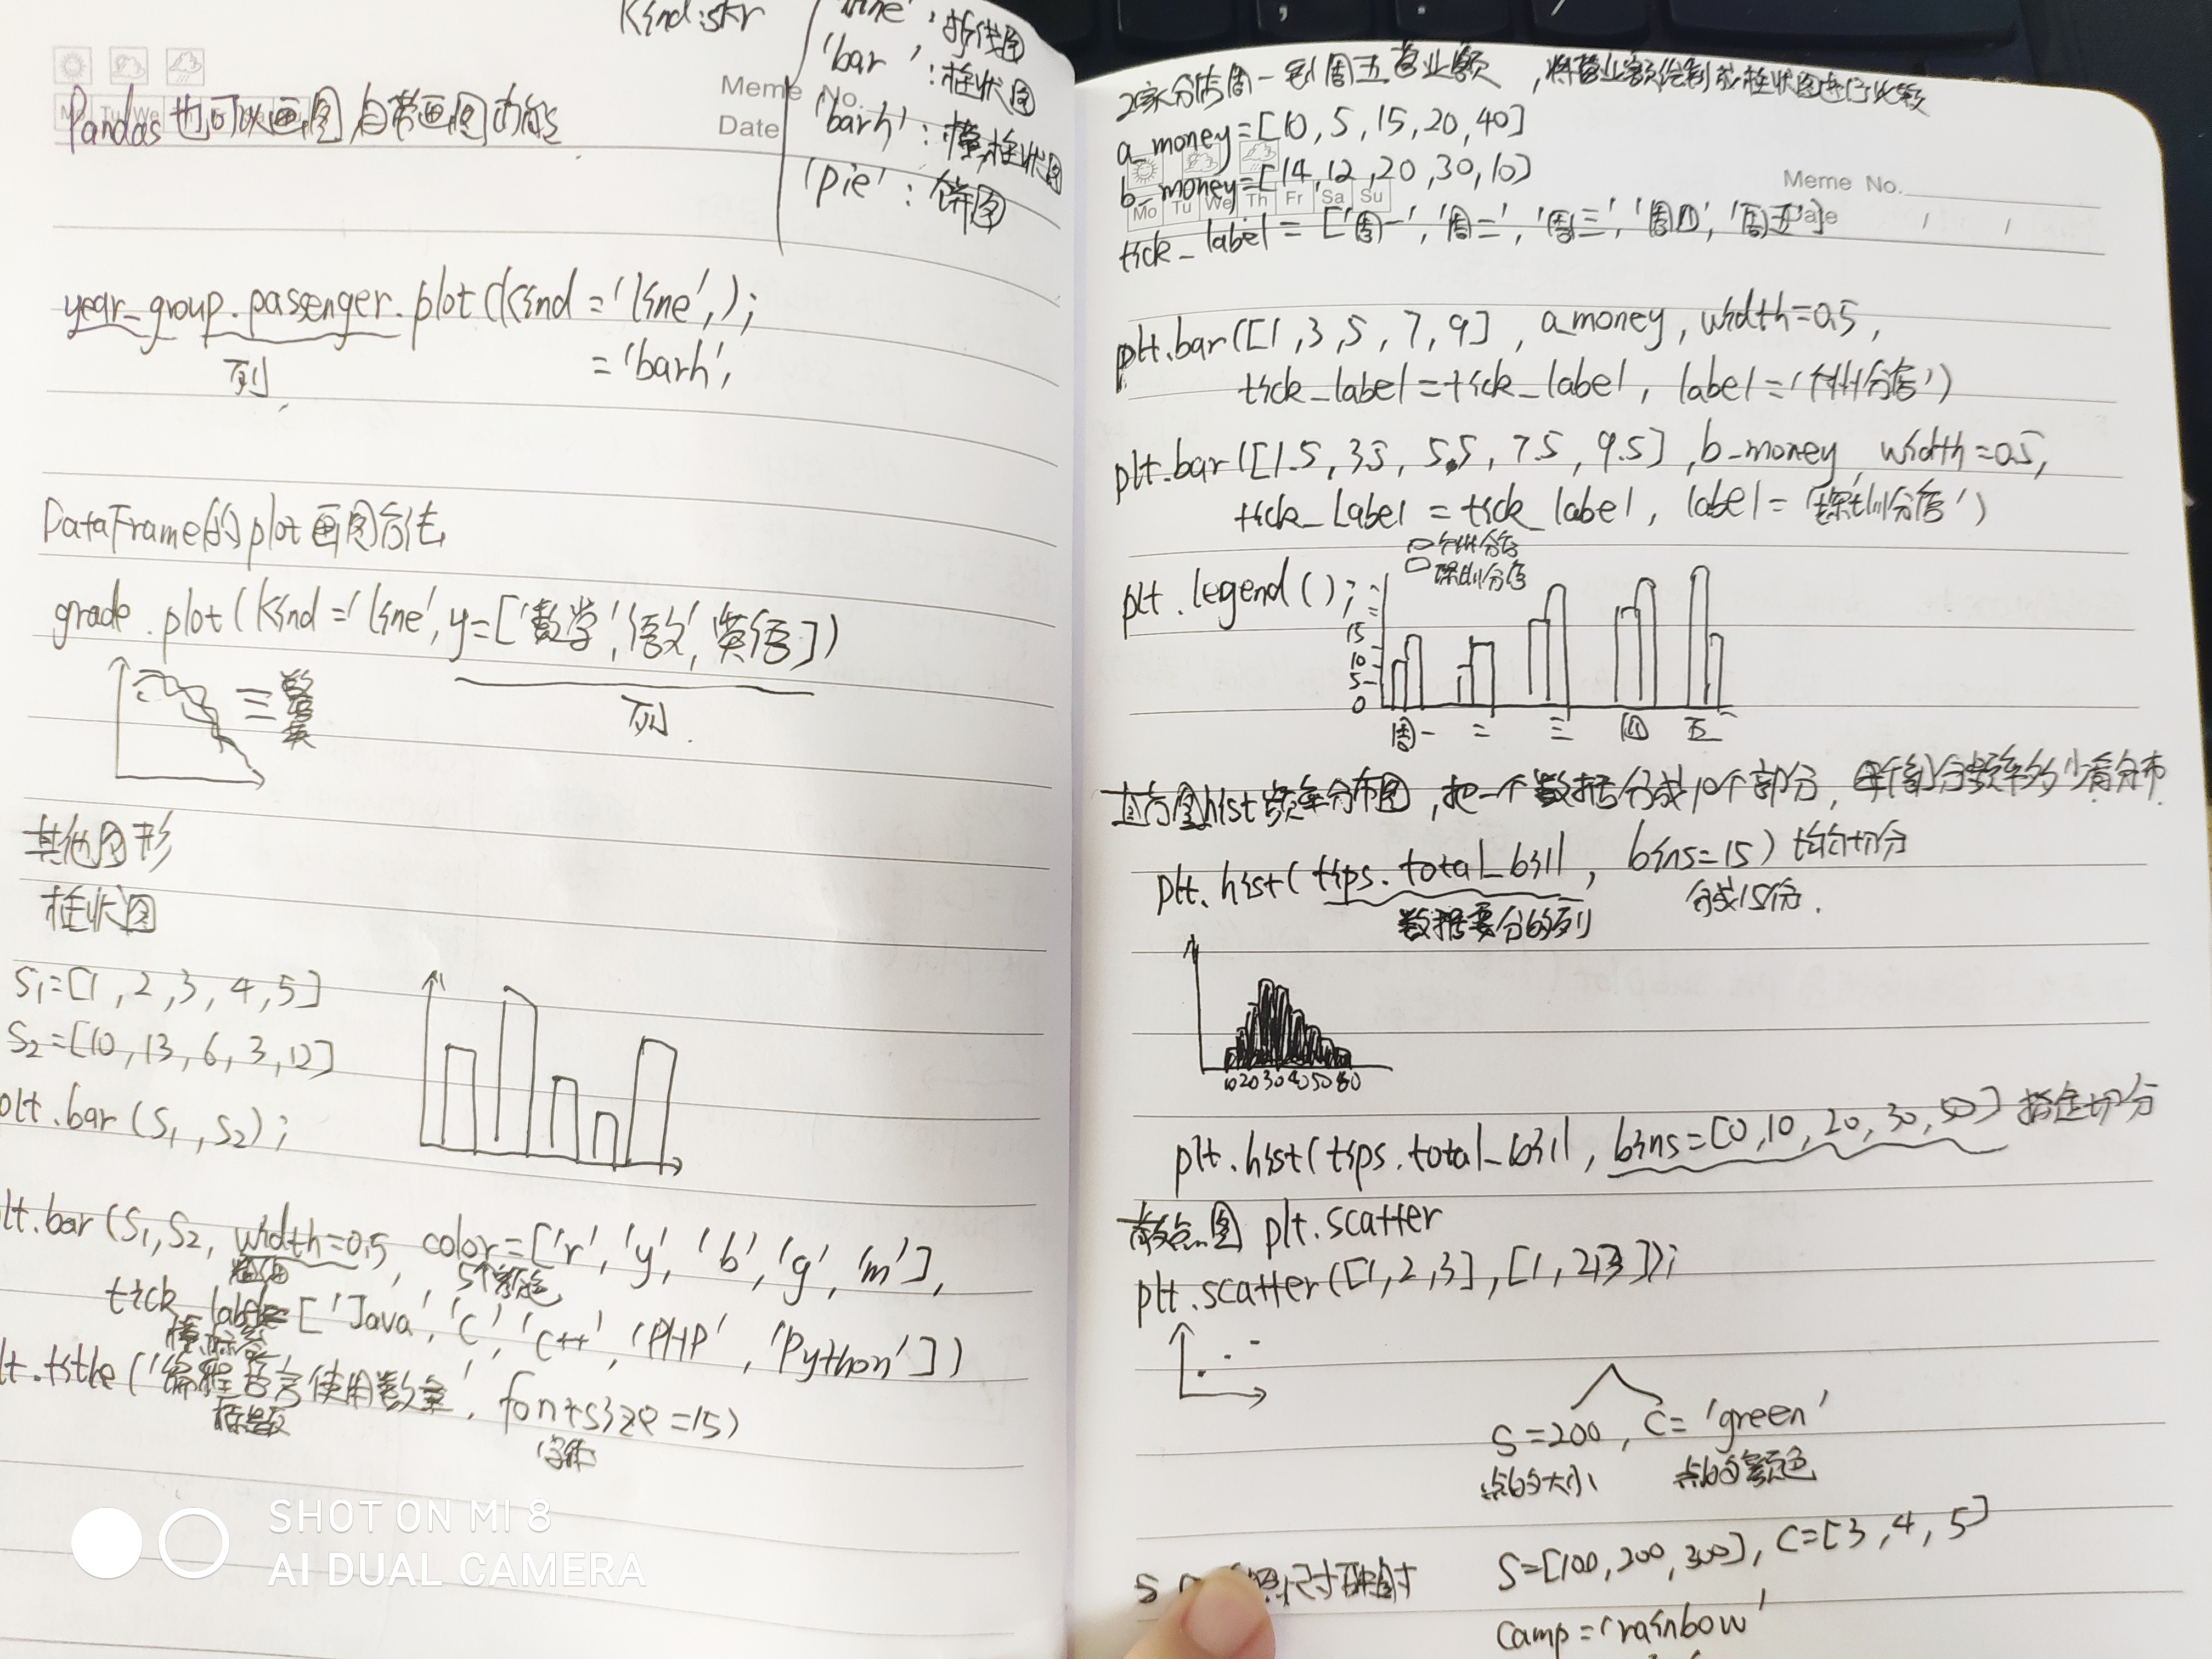 Kind:str
'line':折线图
'bar':柱状图
'barh':横柱状图
'pie':饼图
Meme No.
Date
Pandas也可以画图,自带画图功能
year_group.passenger.plot(kind='line',);
='barh',
列
DataFrame的plot画图方法
grade.plot(kind='line',y=['数学','语文','英语])
数
语
英
列
其他图形
柱状图
S1=[1,2,3,4,5]
S2=[10,13,6,3,12]
plt.bar(S1,S2);
lt.bar(S1,S2,width=0.5,color=['r','y','b','g','m'],
5个颜色
tick_label=['Java','C','C++','PHP','Python'])
横标签
lt.title('编程语言使用数量',fontsize=15)
标题
字体
SHOT ON MI 8
AI DUAL CAMERA
2家分店周一到周五营业额,将营业额绘制成柱状图进行比较
a_money=[10,5,15,20,40]
b_money=[14,12,20,30,10]
Meme No.
Mo Tu We Th Fr Sa Su
Date
tick_label=['周一','周二','周三','周四','周五']
plt.bar([1,3,5,7,9],a_money,width=0.5,
tick_label=tick_label,label='广州分店')
plt.bar([1.5,3.5,5.5,7.5,9.5],b_money,width=0.5,
tick_label=tick_label,label='深圳分店')
广州分店
深圳分店
plt.legend();
15
10
5
0
周一 二 三 四 五
直方图hist频率分布图,把一个数据分成10个部分,每个部分频率多少看分布
plt.hist(tips.total_bill,bins=15)均匀切分
数据要分的列
分成15份.
10 20 30 40 50 60
plt.hist(tips.total_bill,bins=[0,10,20,30,50]指定切分
散点图 plt.scatter
plt.scatter([1,2,3],[1,2,3]);
S=200,C='green'
点的大小
点的颜色
S=[100,200,300],C=[3,4,5]
camp='rainbow'